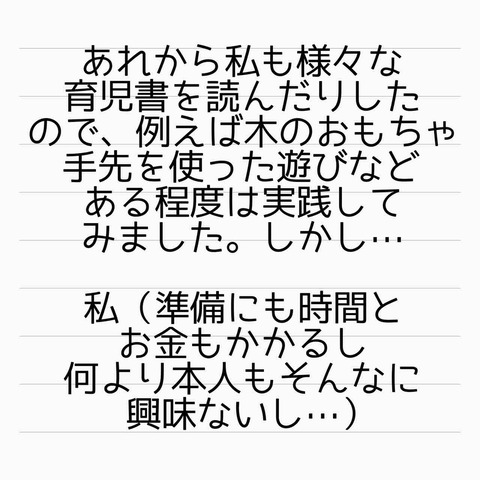 あれから私も様々な
育児書を読んだりした
ので、例えば木のおもちゃ
手先を使った遊びなど
ある程度は実践して
みました。しかし…
私（準備にも時間と
お金もかかるし
何より本人もそんなに
興味ないし…）